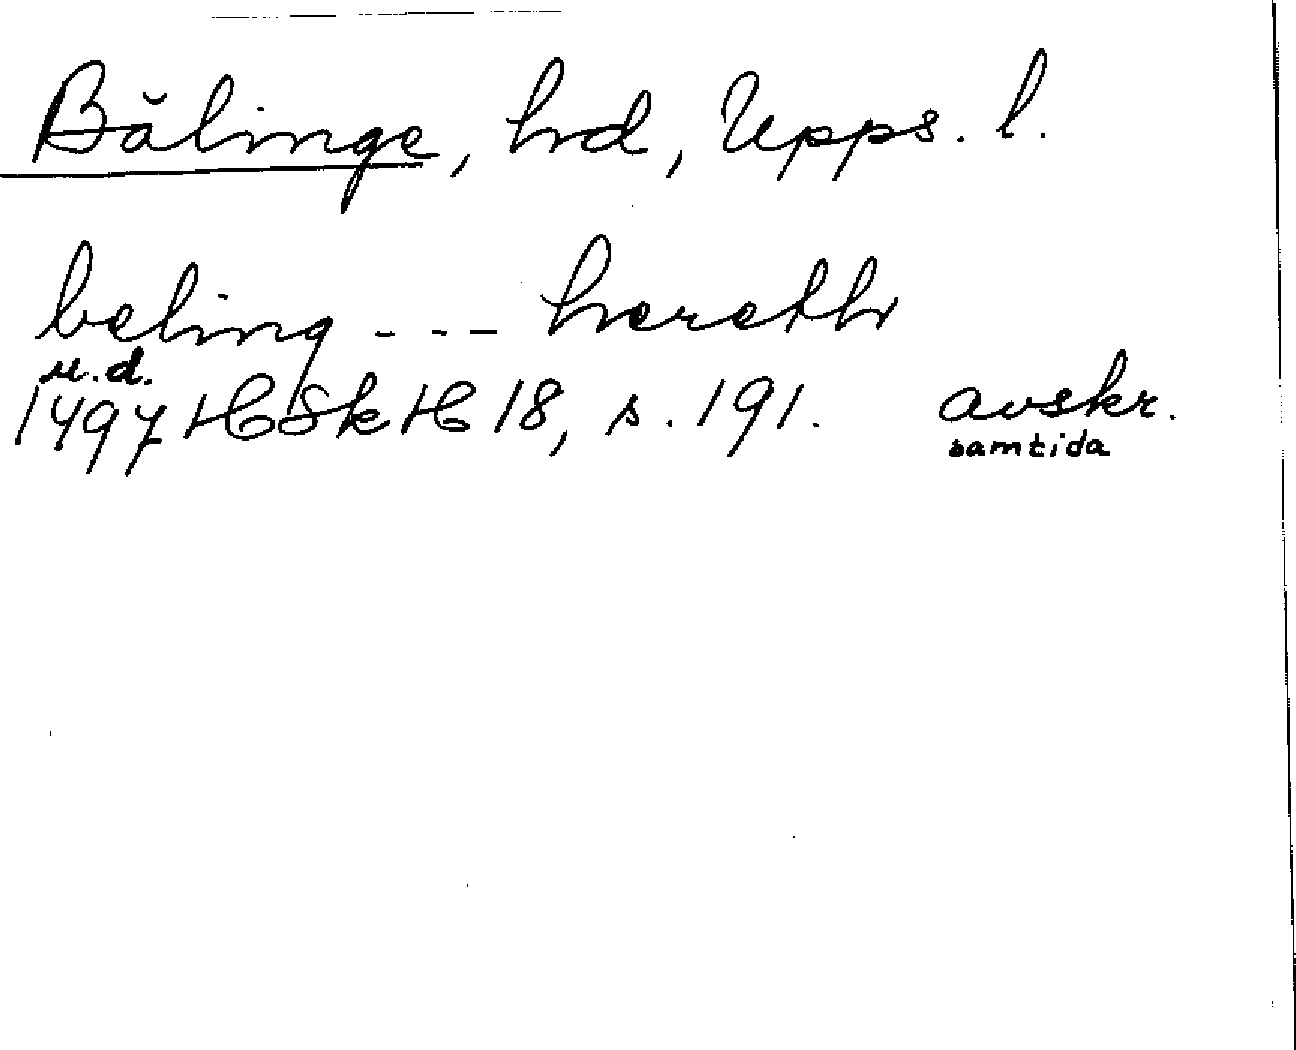 Bälinge, hd, Upps. l.
beling - - - hereth
u.d.
1497 HSkH 18, s. 191. avskr.
samtida